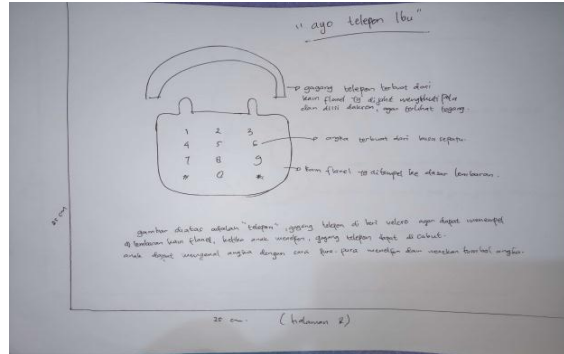 "ayo telepon Ibu"
gagang telepon terbuat dari
kain flanel yg dijahit mengikuti pola
dan diisi dakron, agar terlihat tegang.
1 2 3
4 5 6
7 8 9
* 0 *
angka terbuat dari busa sepatu.
kain flanel yg ditempel ke dasar lembaran.
20 cm
gambar diatas adalah "telepon", gagang telepon di beri velcro agar dapat menempel
di lembaran kain flanel, ketika anak menelfon, gagang telepon dapat di cabut.
anak dapat mengenal angka dengan cara pura-pura menelfon dan menekan tombol angka.
20 cm. (halaman 2)